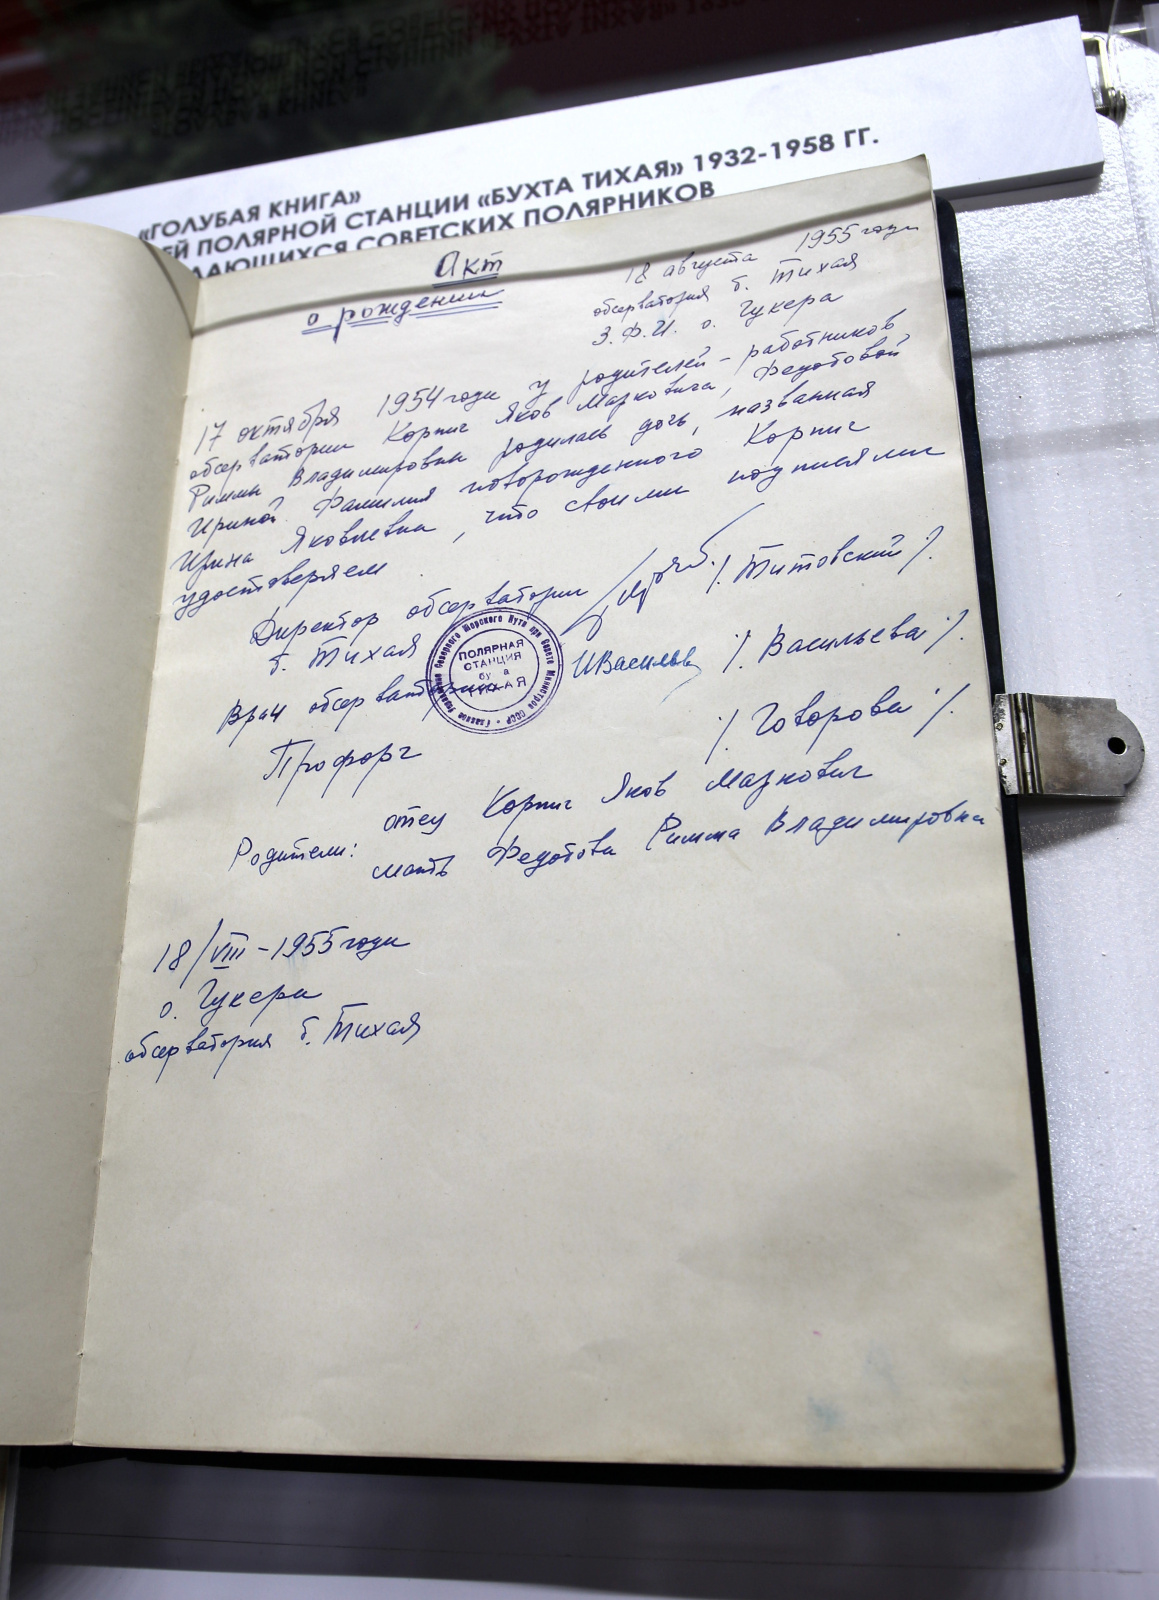 «ГОЛУБАЯ КНИГА»
ЕЙ ПОЛЯРНОЙ СТАНЦИИ «БУХТА ТИХАЯ» 1932-1958 ГГ.
ДАЮЩИХСЯ СОВЕТСКИХ ПОЛЯРНИКОВ
Акт
о рождении
18 августа 1955 года
обсерватория б. Тихая
З.Ф.И. о. Гукера
17 октября 1954 года у родителей - работников
обсерватории Корпис Яков Маркович, Федотовой
Риммы Владимировны родилась дочь, названная
Ириной. Фамилия новорожденного Корпис
Ирина Яковлевна, что своими подписями
удостоверяем.
Директор обсерватории /Титовский/.
б. Тихая
Врач обсерватории ИВасильев /Васильева/.
Профорг /Говорова/.
Родители: отец Корпис Яков Маркович
мать Федотова Римма Владимировна
18/VIII-1955 года
о. Гукера
обсерватория б. Тихая
Главное Управление Северного Морского Пути при Совете Министров СССР
ПОЛЯРНАЯ
СТАНЦИЯ
ТИХАЯ